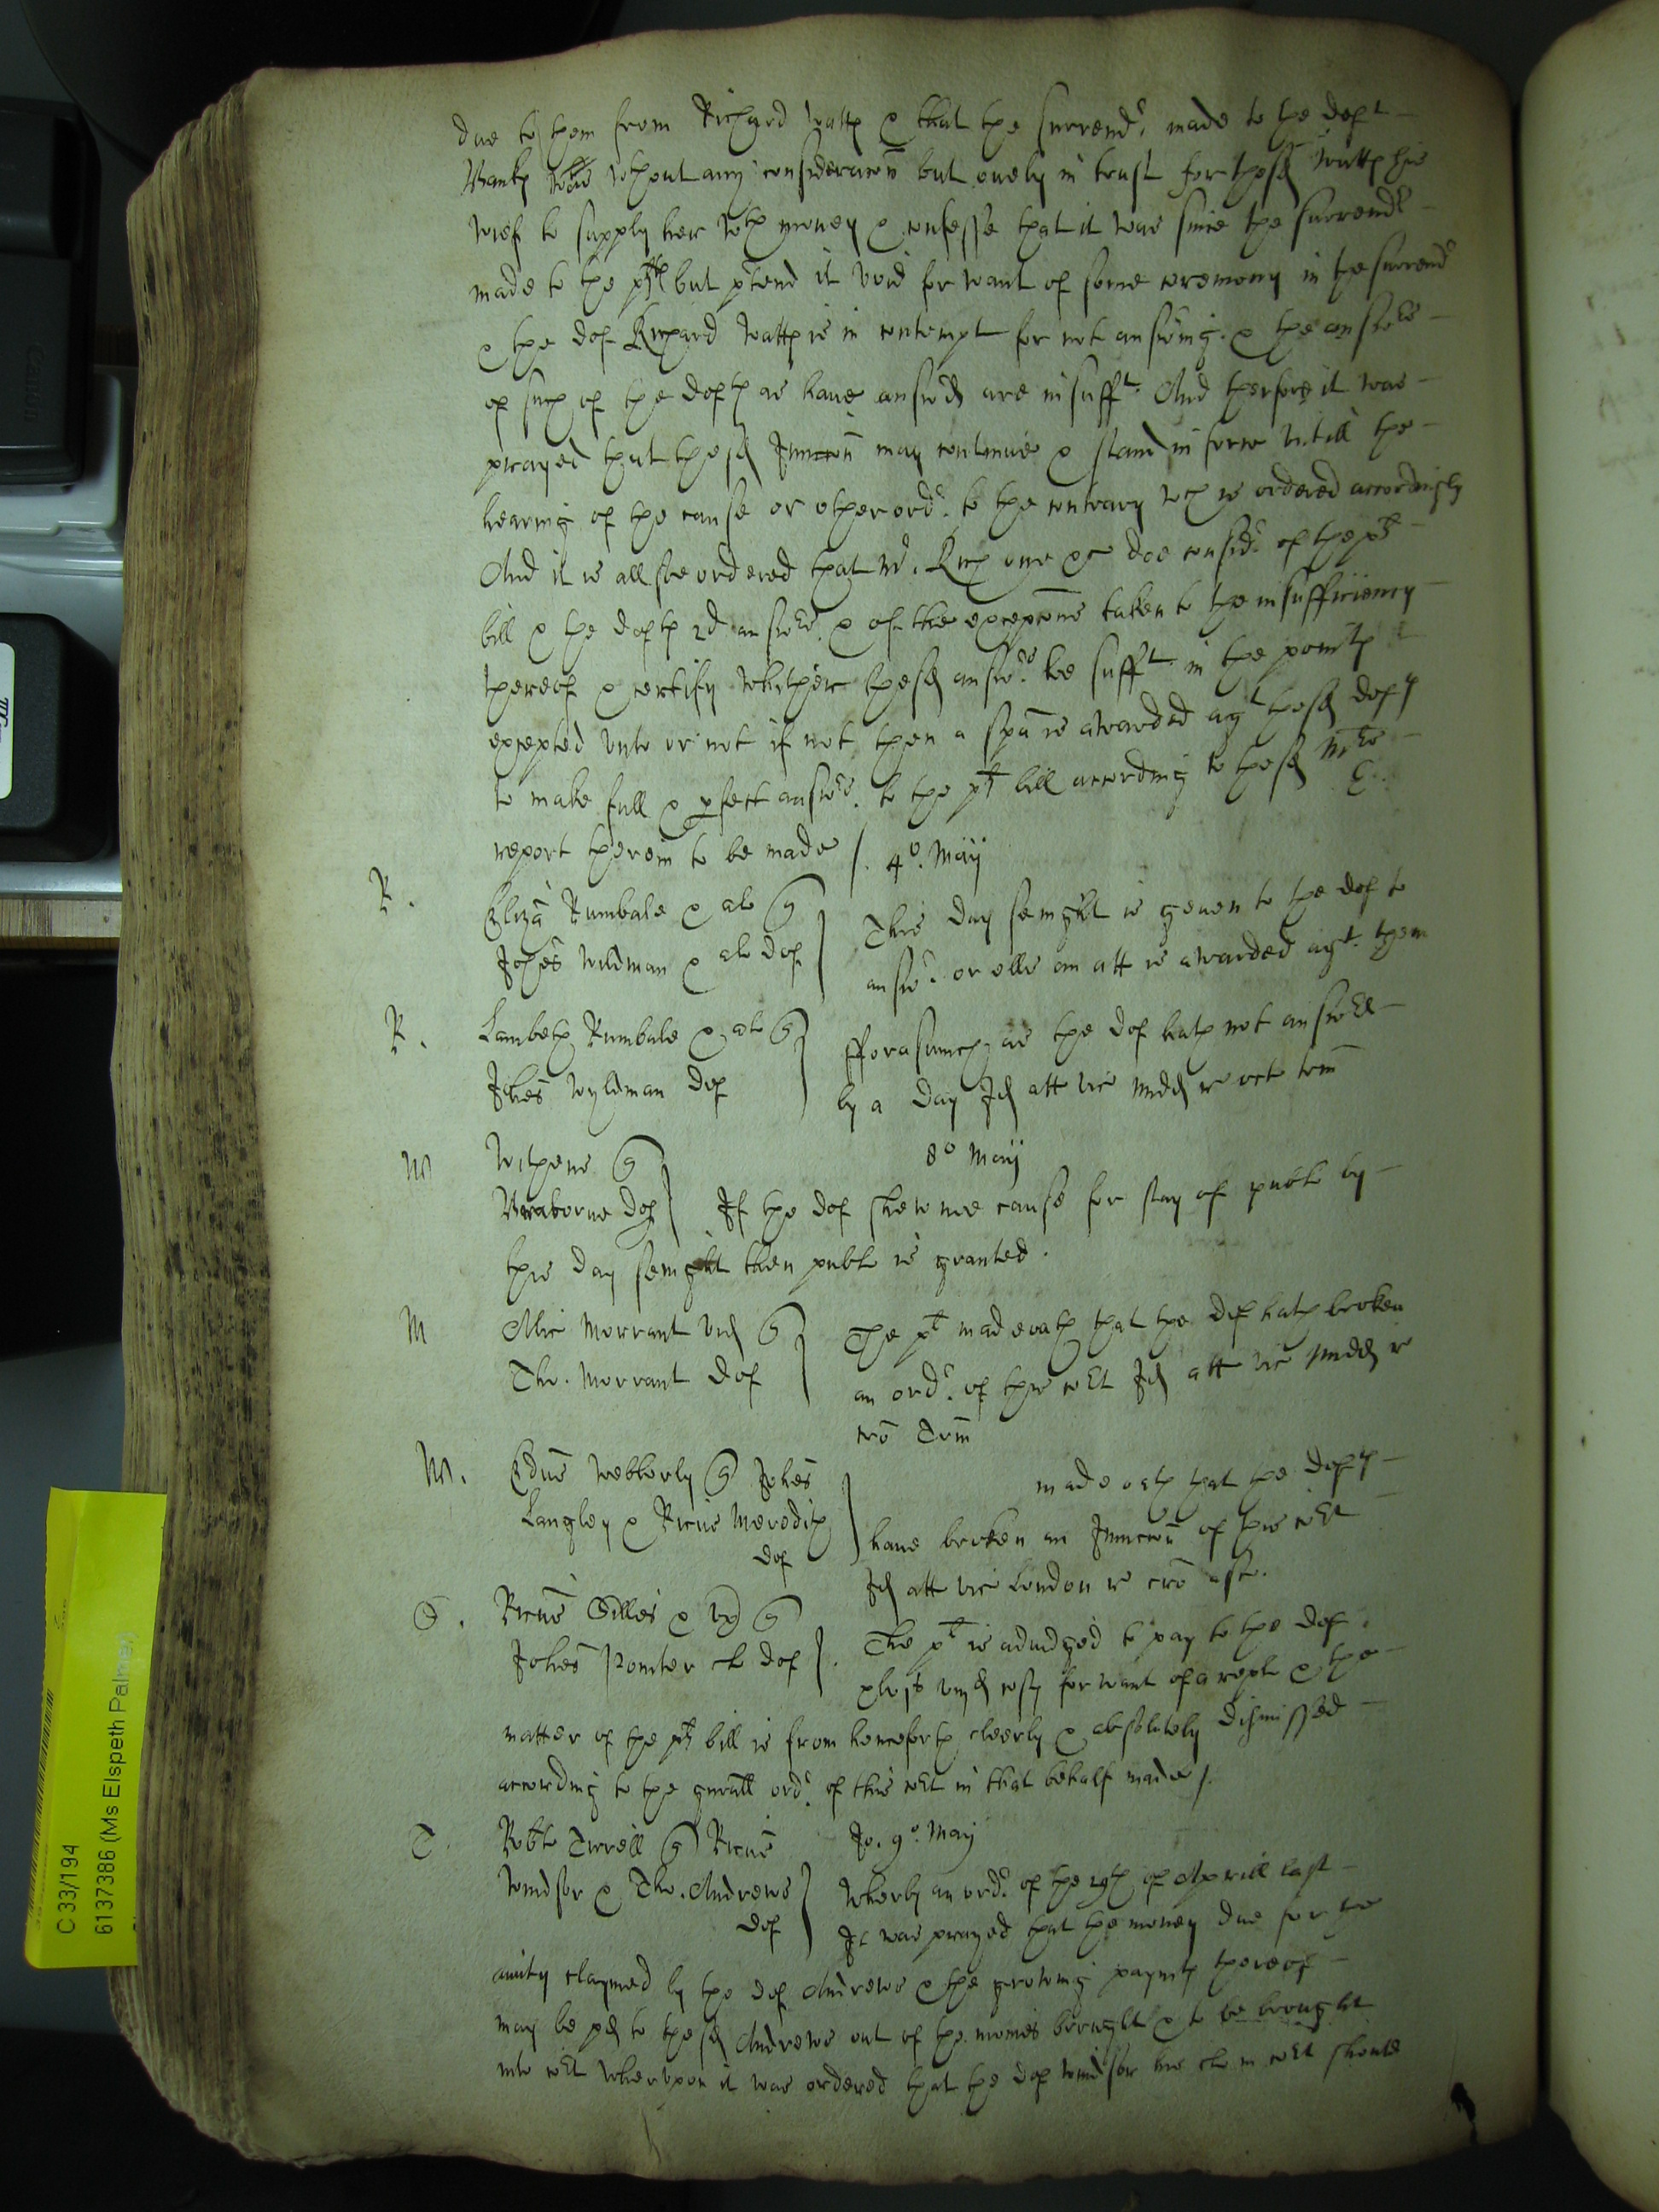 due to them from Richard Watts & that the surrendr. made to the deft
Banks was wthout any consideracōn but onely in trust for the sd Watts his
wief to supply her wth money & confesse that it was since the surrendr
made to the plts but prtend it void for want of some ceremony in the surrendr
& the def Richard Watts is in contempt for not answring. & the answers
of such of the defts as have answrd are insufft. And therfore it was
prayed that the sd Iniunccōn may contynue & stand in force vntill the
hearing of the cause or other ordr. to the contrary wch is ordered accordingly
And it is allsoe ordered that Mr. Rich one &c doe considr. of the plts
bill & the defts answers. & of the excepcōns taken to the insufficiency
thereof & certify whither the sd answrs. be sufft in the points
excepted vnto or not if not then a spā is awarded agt the sd defts
to make full & pfect answers. to the plts bill according to the sd Mrs
report therein to be made /. 4o. Maij
R.
Elizā Rumbale & al q
Johēs Wildman & al def
This day sevnight is geven to the def to
answr. or ells an att is awarded agt. them
R.
Lambeth Rumbale & al q
Johēs Wyldman def
fforasmuch as the def hath not answered
by a day Id att vic Midd re oct trin
8o Maij
W
Withens q
Braborne def
If the def shew noe cause for stay of publ by
this day sevnight then publ is granted.
M
Alic Morrant vid q
Tho. Morrant def
The plt made oath that the def hath broken
an ordr. of this cort Id att vic Midd re
cro Trin
W.
Edūs Webberly q Johēs
Langley & Ricūs Meredith
def
made oath that the defts
have broken an Iniunccōn of this cort
Id att vic London re crō asc.
G.
Ricūs Gilles & vx q
Johēs Pointer cl def
The plt is adiudged to pay to the def.
xls vjd costs for want of a repl & the
matter of the plts bill is from henceforth cleerly & absolutely dismissed
according to the gnrall ordr. of this cort in that behalf made /.
T.
Robtē Tirrell q Ricūs
Windsor & Tho. Andrewes
def
Jo. 9o. May
Wherby an ordr. of the 29th of Aprill last
It was prayed that the money due for the
anuity claymed by the def Andrewes & the growing paymts thereof
may be pd to the sd Andrewes out of the monies brought & to be brought
into cort whervpon it was ordered that the def Windsor his cl in cort should
C 33/194
6137386 (Ms Elspeth Palmer)
Canon